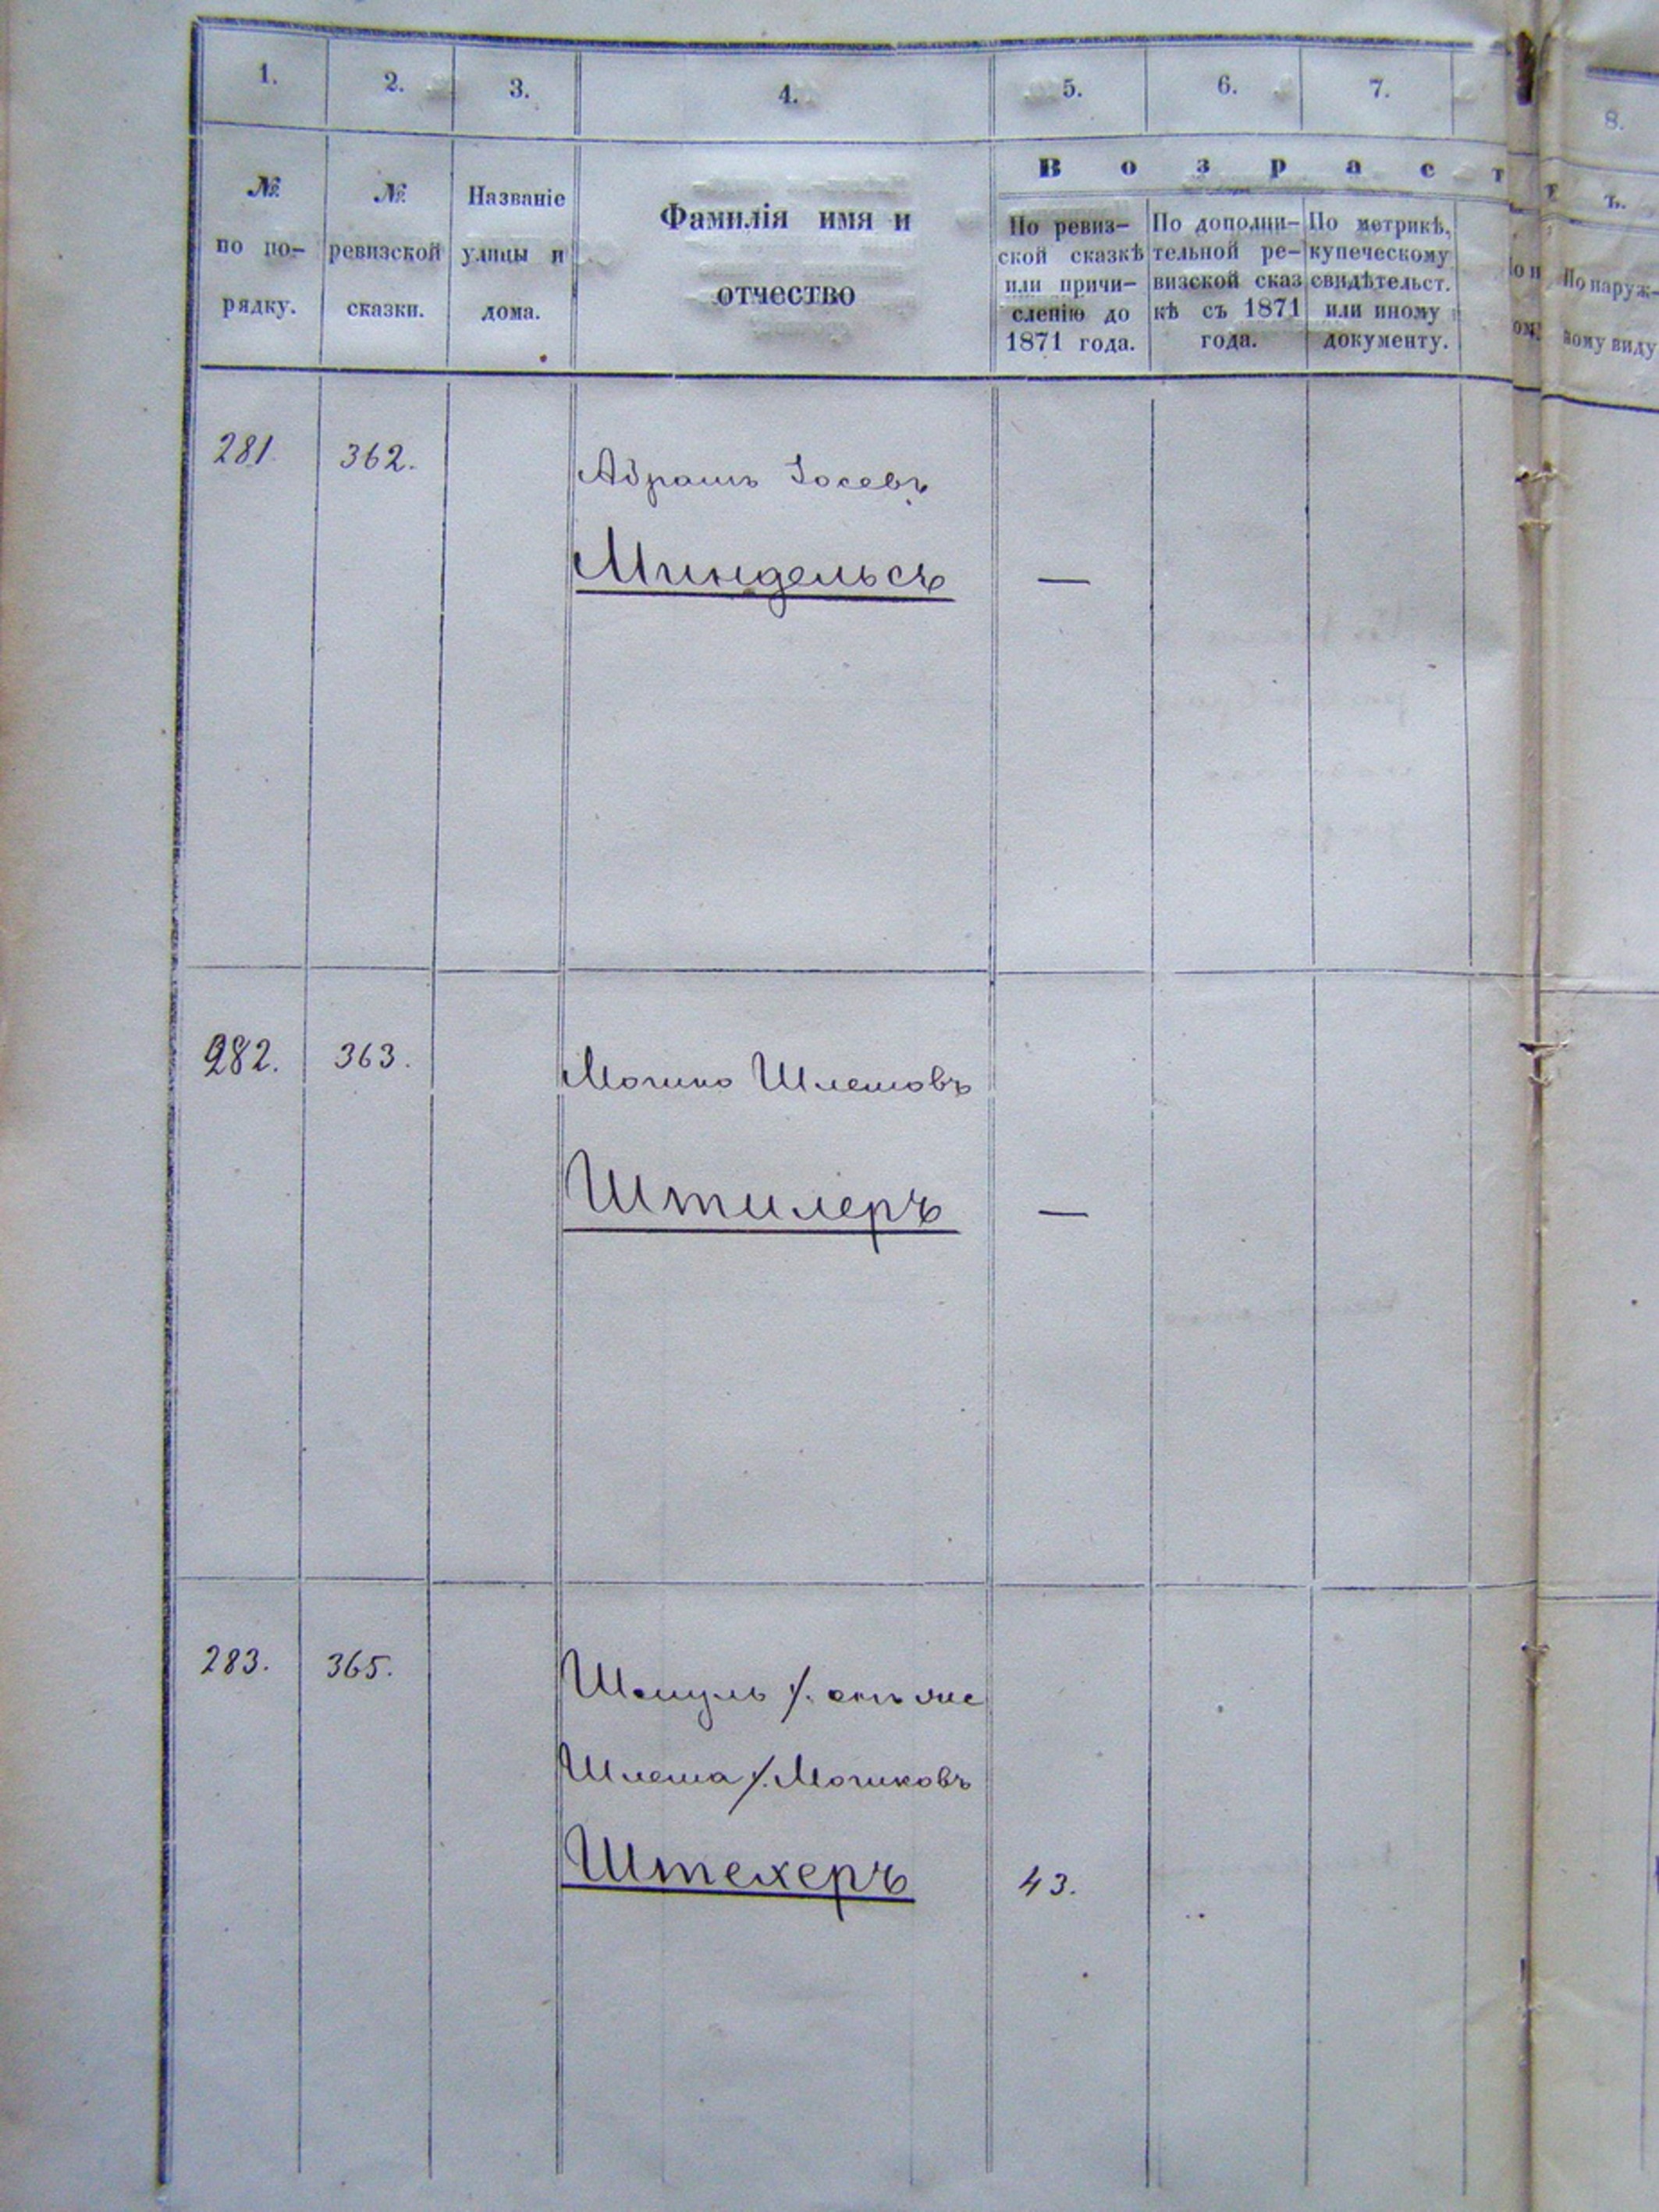 1.
2.
3.
4.
5.
6.
7.
8.
№
по по-
рядку.
№
ревизской
сказки.
Названіе
улицы и
дома.
Фамилія имя и
отчество
Возраст
ъ.
По ревиз-
ской сказкѣ
или причи-
сленію до
1871 года.
По дополни-
тельной ре-
визской сказ
кѣ съ 1871
года.
По метрикѣ,
купеческому
свидѣтельст.
или иному
документу.
По наруж-
ному виду
281. 362. Абрамъ Іосевъ
Миндельсъ —
282. 363. Мошко Шлемовъ
Штилеръ —
283. 365. Шмуль /. онъ же
Шлема /. Мошковъ
Штехеръ 43.